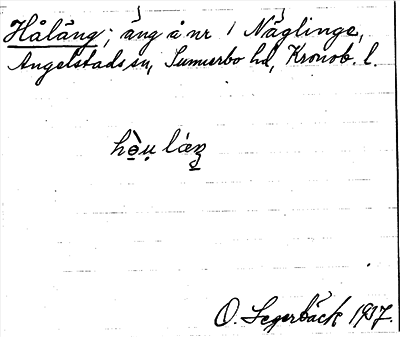 Hålång; äng å nr 1 Näglinge,
Angelstads sn, Sunnerbo hd, Kronob. l.
O. Segerbäck 1937.